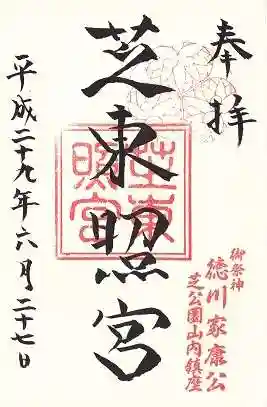 奉拝
御祭神
徳川家康公
芝公園山内鎮座
芝東照宮
芝東照宮
平成二十九年六月二十七日